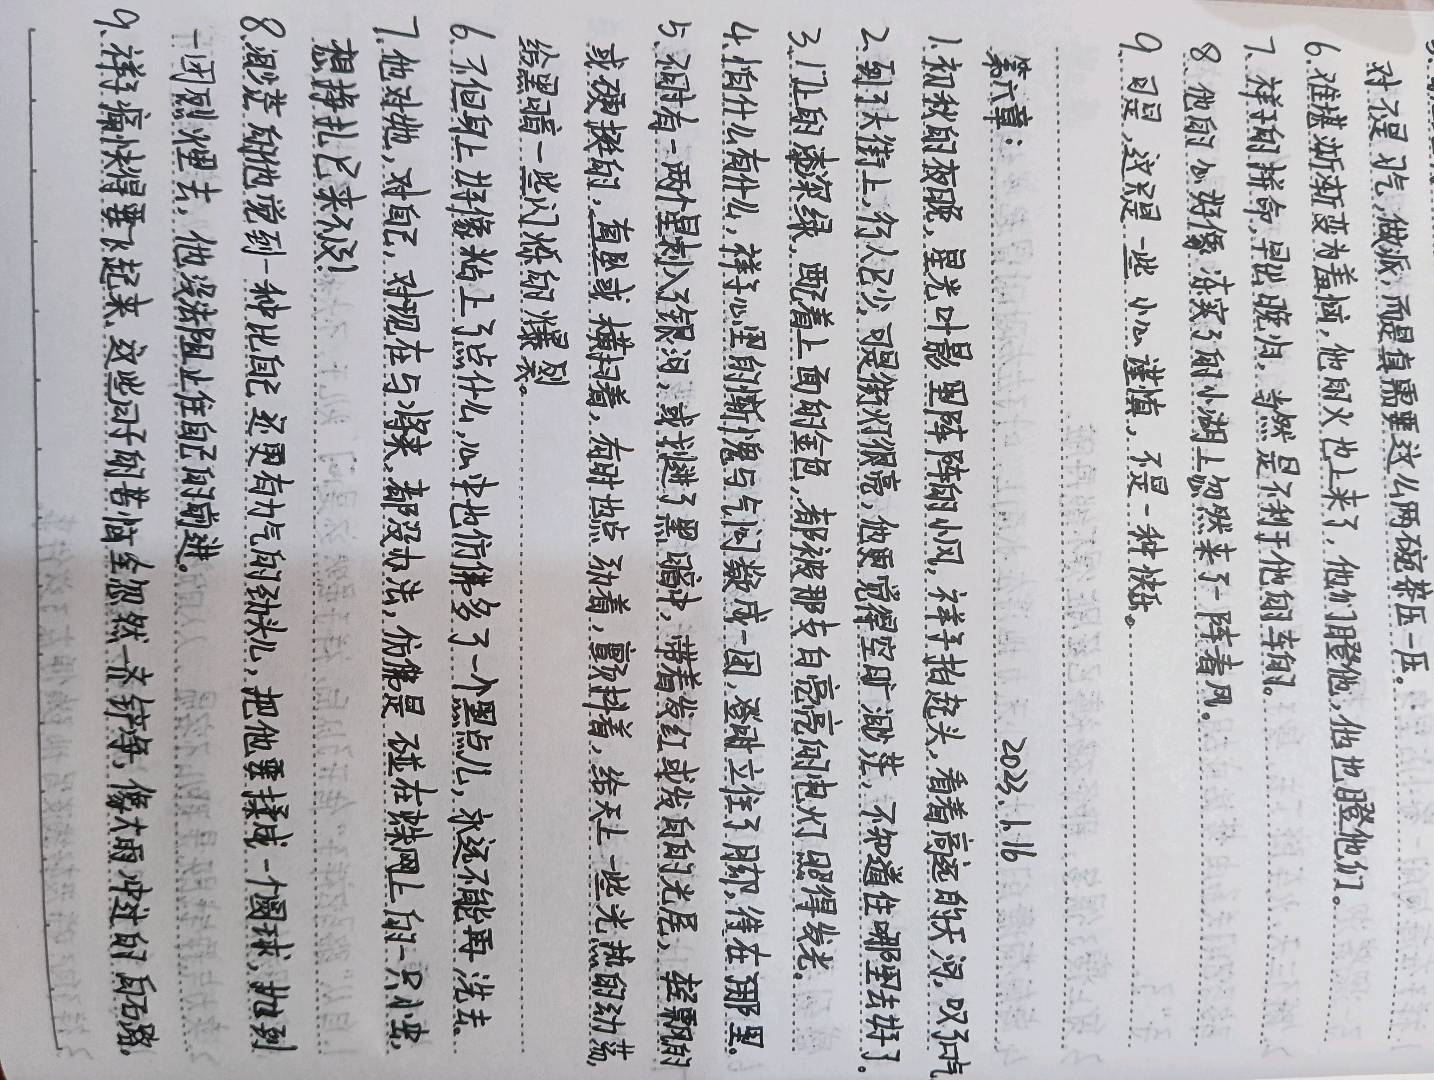 对不是习气,做派,而是真需要这么两碗茶压一压。
6.难堪渐渐变为羞恼,他的火也上来了,他们瞪他,他也瞪他们。
7.祥子的拼命,早出晚归,当然是不利于他的车的。
8.他的心好像冻实了的小湖上忽然来了一阵春风。
9.可是,这只是一些小心谨慎,不是一种快乐。
第六章: 2023.1.16
1.初秋的夜晚,星光叶影里阵阵的小风,祥子抬起头,看着高远的天河,叹了口气
2.到了大街上,行人已少,可是街灯很亮,他更觉得空旷渺茫,不知道往哪里去好了.
3.门上的漆深绿,配着上面的金色,都被那支白亮亮的电灯照得发光。
4.怕什么有什么,祥子心里的惭愧与气闷凝成一团,登时立住了脚,呆在那里。
5.有时有一两个星刺入了银河,或划进了黑暗中,带着发红或发白的光尾,轻飘的
或硬挺的,直坠或横扫着,有时也点动着,颤抖着,给天上一些光热的动荡
给黑暗一些闪烁的爆裂。
6.不但身上好像粘上了点什么,心中也仿佛多了一个黑点儿,永远不能再洗去.
7.他对她,对自己,对现在与将来,都没办法,仿佛是碰在蛛网上的一只小虫,
想挣扎已来不及!
8.渺茫的他觉到一种比自己还更有力气的劲头儿,把他要揉成一个圆球,抛到
一团烈火里去,他没法阻止住自己的前进。
9.祥子痛快得要飞起来,这些日子的苦恼全忽然一齐铲净,像大雨冲过的白石路.